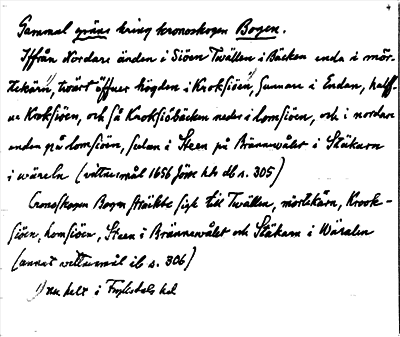 Gammal gräns kring kronoskogen Bogen.
Iffrån Nordare änden i Siöen Twällen i Bäcken enda i mör-
tekärn, twärt öffuer högden i Kroksiöen, Sunnare i Endan, halff-
ue Kroksiöen, och så Kroksiöbäcken neder i Lomsiöen, och i nordare
enden på Lomsiöen, sedan i Steen på Brännewålet i Stäkarn
i wäneln (vittnesmål 1656 Jösse hds db s. 305)
Cronoskogen Bogen sträckte sigh till Twällen, mörtekärn, Krook-
siöen, Lomsiöen, Steen i Brännewålet och Stäkarn i Wäralen
(annat vittnesmål ib s. 306)
1) nu helt i Fryksdals hd